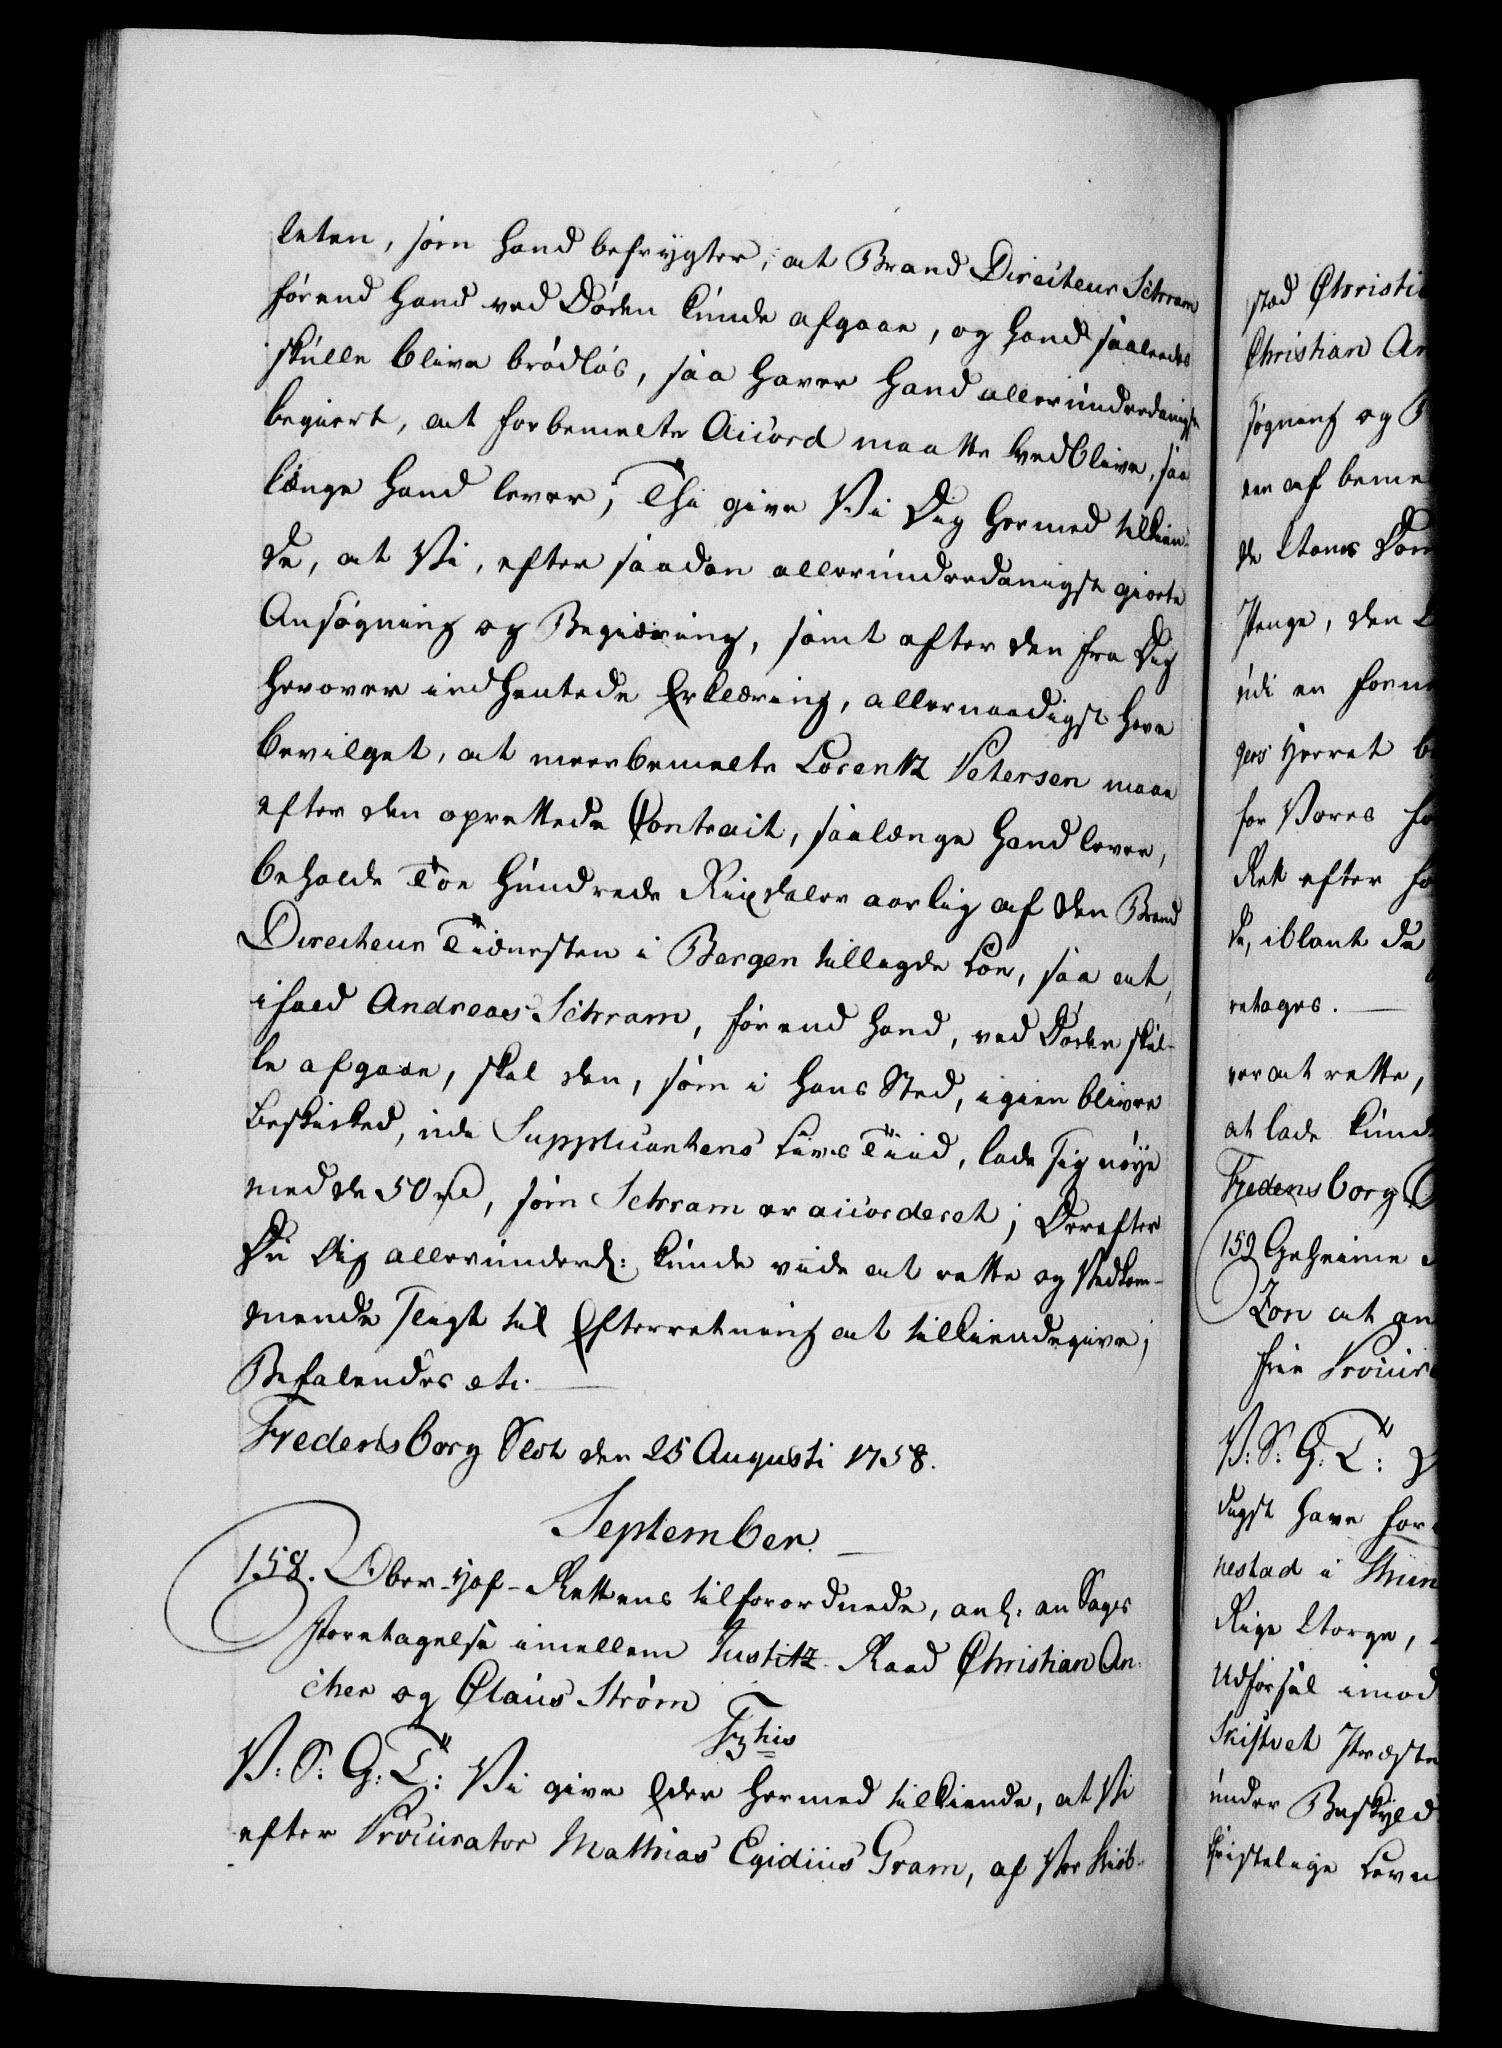 leten, som hand befrygter, at Brand Directeur Schram
førend hand ved Døden kunde afgaae, og hand saaledes
skulle blive brødløs, saa haver hand allerunderdanigst
begiert, at forbemelte Accord maatte vedblive, saa
længe hand lever; Thi give Vi Dig hermed tilkien-
de, at Vi, efter saadan allerunderdanigst giorte
Ansøgning og Begiæring, samt efter den fra Dig
herover indhentede Erklæring, allernaadigst have
bevilget, at meerbemelte Lorentz Petersen maae
efter den oprettede Contract, saalænge hand lever,
beholde Toe Hundrede Rixdaler aarlig af den Brand
Directeur Tienesten i Bergen tillagde Løn, saa at,
ifald Andreas Schram, førend hand, ved Døden skul-
le afgaae, skal den, som i hans Sted, igien bliver
beskicket, udi Supplicantens Livs Tiid, lade sig nøye
med de 50 rd, som Schram er accorderet; Derefter
Du Dig allerunderd: kunde viide at rette og Vedkom-
mende sligt til Efterretning at tilkiendegive;
Befalendes etc.
Fredensborg Slot den 25 Augusti 1758.
September.
158. Ober-Hof-Rettens tilforordnede, anl: en Sages
Foretagelse imellem Justitz-Raad Christian An-
cher og Claus Strøm
V: S: G: T: Vi give Eder hermed tilkiende, at Vi
efter Procurator Matthias Egidius Gram, af Vor Kiøb-
stæd Christi
Christian An
søgning og
een af beme
de
Penge, den
udi en
gers Herret
for Vores
Ret efter
de, iblant
retages.
ver at rette,
at lade kund
Fredensborg
159 Geheime
Lon at an
frie Procur
V: S: G: T:
digst have for
nestad i
Rige Norge,
Udforsel imod
Skiptvet Præste
under Beskyld
christelige Levn